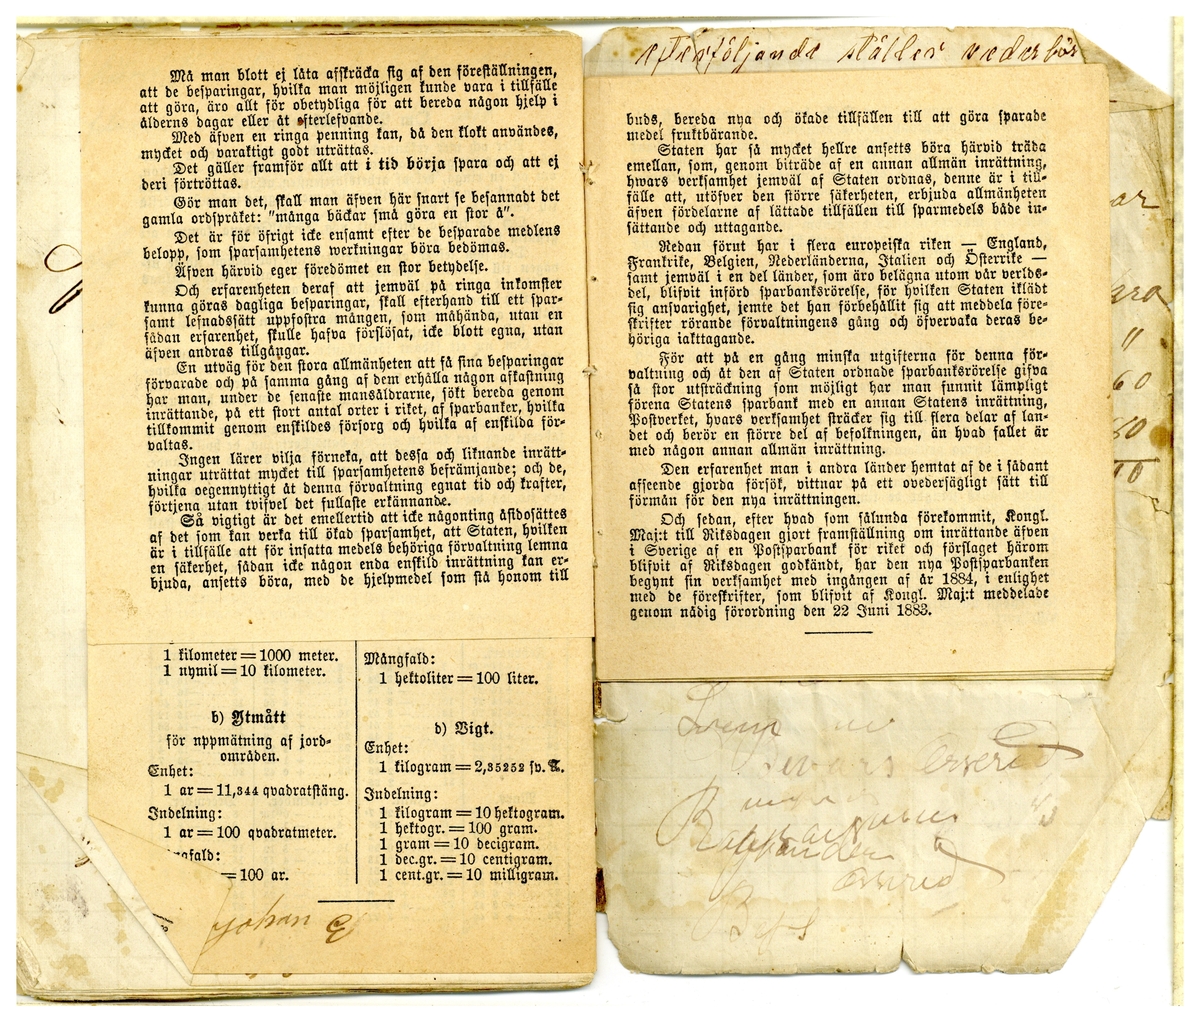 Må man blott ej låta afskräcka sig af den föreställningen,
att de besparingar, hvilka man möjligen kunde vara i tillfälle
att göra, äro allt för obetydliga för att bereda någon hjelp i
ålderns dagar eller åt efterlefvande.
Med äfven en ringa penning kan, då den klokt användes,
mycket och varaktigt godt uträttas.
Det gäller framför allt att i tid börja spara och att ej
deri förtröttas.
Gör man det, skall man äfven här snart se besannadt det
gamla ordspråket: "många bäckar små göra en stor å".
Det är för öfrigt icke ensamt efter de besparade medlens
belopp, som sparsamhetens werkningar böra bedömas.
Äfven härvid eger föredömet en stor betydelse.
Och erfarenheten deraf att jemväl på ringa inkomster
kunna göras dagliga besparingar, skall efterhand till ett spar-
samt lefnadssätt uppfostra mången, som måhända, utan en
sådan erfarenhet, skulle hafva förslösat, icke blott egna, utan
äfven andras tillgångar.
En utväg för den stora allmänheten att få sina besparingar
förvarade och på samma gång af dem erhålla någon afkastning
har man, under de senaste mansåldrarne, sökt bereda genom
inrättande, på ett stort antal orter i riket, af sparbanker, hvilka
tillkommit genom enskildes försorg och hvilka af enskilda för-
valtas.
Ingen lärer vilja förneka, att dessa och liknande inrätt-
ningar uträttat mycket till sparsamhetens befrämjande; och de,
hvilka oegennyttigt åt denna förvaltning egnat tid och krafter,
förtjena utan tvifvel det fullaste erkännande.
Så vigtigt är det emellertid att icke någonting åsidosättes
af det som kan verka till ökad sparsamhet, att Staten, hvilken
är i tillfälle att för insatta medels behöriga förvaltning lemna
en säkerhet, sådan icke någon enda enskild inrättning kan er-
bjuda, ansetts böra, med de hjelpmedel som stå honom till
1 kilometer = 1000 meter.
1 nymil = 10 kilometer.
b) Ytmått
för uppmätning af jord-
områden.
Enhet:
1 ar = 11,344 qvadratstäng.
Indelning:
1 ar = 100 qvadratmeter.
ngfald:
= 100 ar.
Mångfald:
1 hektoliter = 100 liter.
d) Vigt.
Enhet:
1 kilogram = 2,35252 sv. ℔.
Indelning:
1 kilogram = 10 hektogram.
1 hektogr. = 100 gram.
1 gram = 10 decigram.
1 dec.gr. = 10 centigram.
1 cent.gr. = 10 milligram.
Johan E
efterföljande ställer vederbör
buds, bereda nya och ökade tillfällen till att göra sparade
medel fruktbärande.
Staten har så mycket hellre ansetts böra härvid träda
emellan, som, genom biträde af en annan allmän inrättning,
hwars verksamhet jemväl af Staten ordnas, denne är i till-
fälle att, utöfver den större säkerheten, erbjuda allmänheten
äfven fördelarne af lättade tillfällen till sparmedels både in-
sättande och uttagande.
Redan förut har i flera europeiska riken — England,
Frankrike, Belgien, Nederländerna, Italien och Österrike —
samt jemväl i en del länder, som äro belägna utom vår verlds-
del, blifvit införd sparbanksrörelse, för hvilken Staten iklädt
sig ansvarighet, jemte det han förbehållit sig att meddela före-
skrifter rörande förvaltningens gång och öfvervaka deras be-
höriga iakttagande.
För att på en gång minska utgifterna för denna för-
valtning och åt den af Staten ordnade sparbanksrörelse gifva
så stor utsträckning som möjligt har man funnit lämpligt
förena Statens sparbank med en annan Statens inrättning,
Postverket, hvars verksamhet sträcker sig till flera delar af lan-
det och berör en större del af befolkningen, än hvad fallet är
med någon annan allmän inrättning.
Den erfarenhet man i andra länder hemtat af de i sådant
afseende gjorda försök, vittnar på ett ovedersägligt sätt till
förmån för den nya inrättningen.
Och sedan, efter hvad som sålunda förekommit, Kongl.
Maj:t till Riksdagen gjort framställning om inrättande äfven
i Sverige af en Postsparbank för riket och förslaget härom
blifvit af Riksdagen godkändt, har den nya Postsparbanken
begynt sin verksamhet med ingången af år 1884, i enlighet
med de föreskrifter, som blifvit af Kongl. Maj:t meddelade
genom nådig förordning den 22 Juni 1883.
ar
ara
"
60
80
10